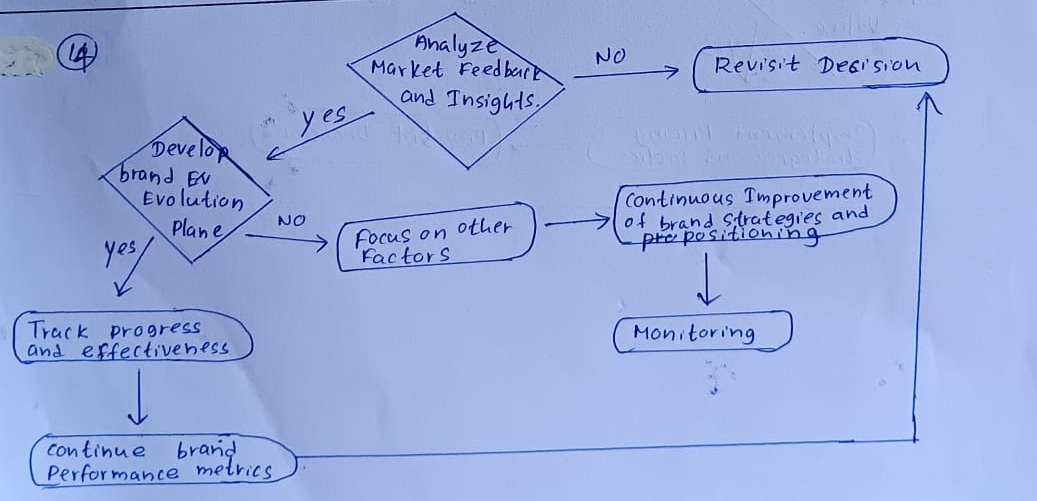 14
Analyze
Market Feedback
and Insights.
NO
Revisit Decision
yes
Develop
brand Ev
Evolution
Plane
NO
Focus on other
Factors
Continuous Improvement
of brand strategies and
pre positioning
yes
Track progress
and effectiveness
Monitoring
Continue brand
Performance metrics